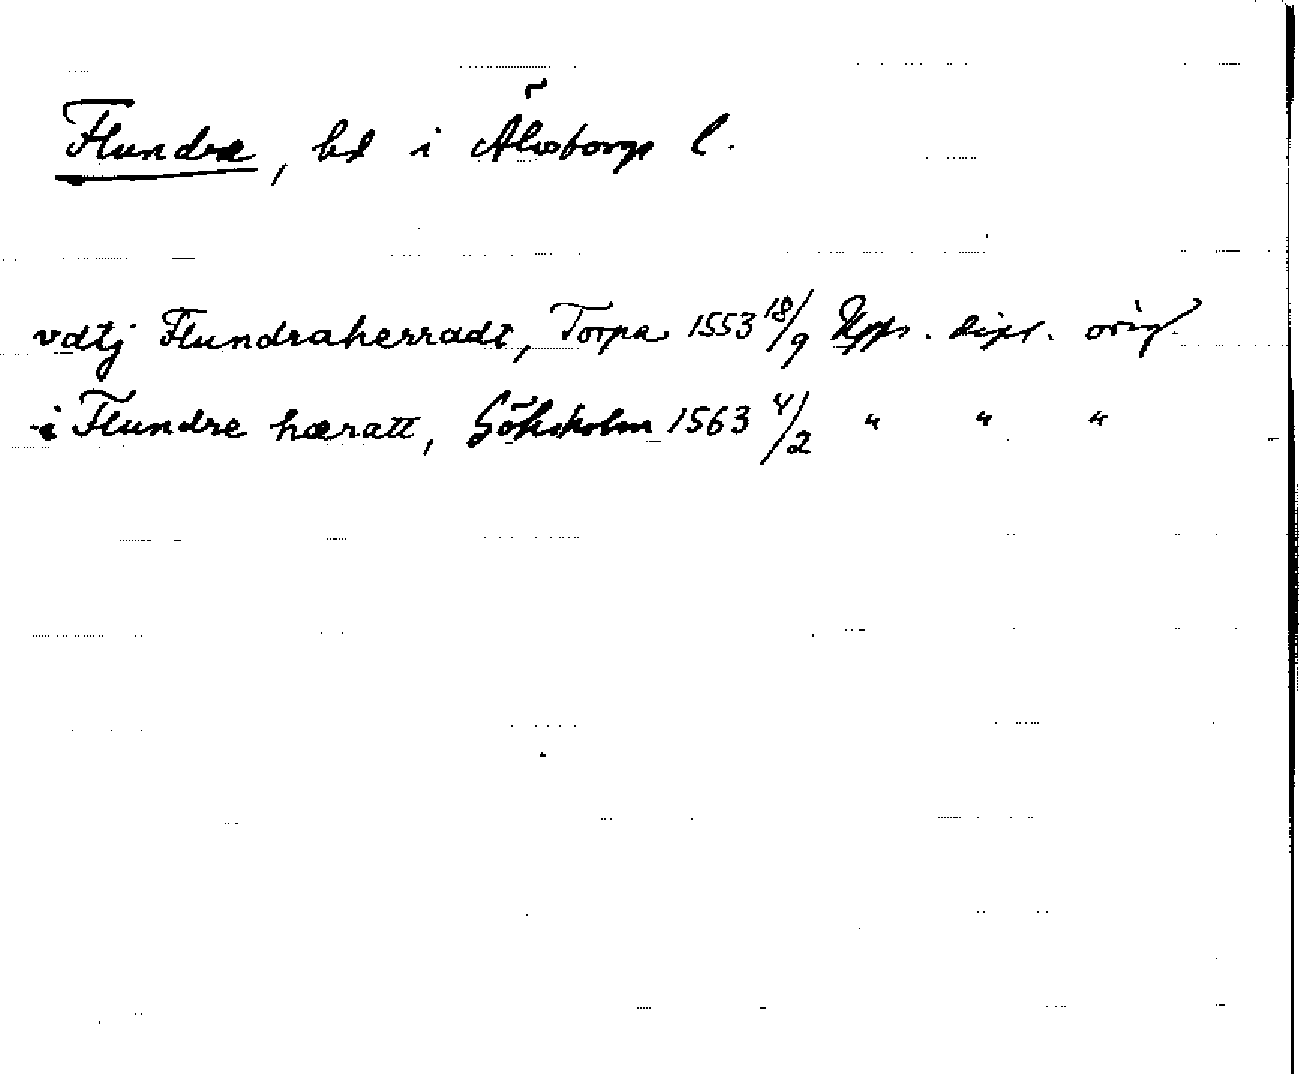 Flundre, hd i Älvsborgs l.
vdtj Flundraherradt, Torpa 1553 18/9 Upps. dipl. orig.
i Flundre hæratt, Göksholm 1563 4/2 " " "